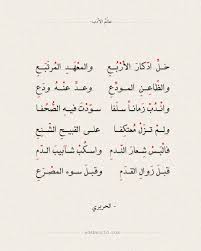 عالم الأدب
خلّ ادّكار الأربُعِ والمعْهَدِ المُرتَبَعِ
والظّاعِنِ المودِّعِ وعدِّ عنْهُ ودَعِ
وانْدُبْ زَماناً سلَفا سوّدْتَ فيهِ الصُّحُفا
ولمْ تزَلْ مُعتكِفا على القبيحِ الشّنِعِ
فالْبَسْ شِعارَ النّدمِ واسكُبْ شآبيبَ الدّمِ
قبلَ زَوالِ القدَمِ وقبلَ سوء المصْرَعِ
- الحريري